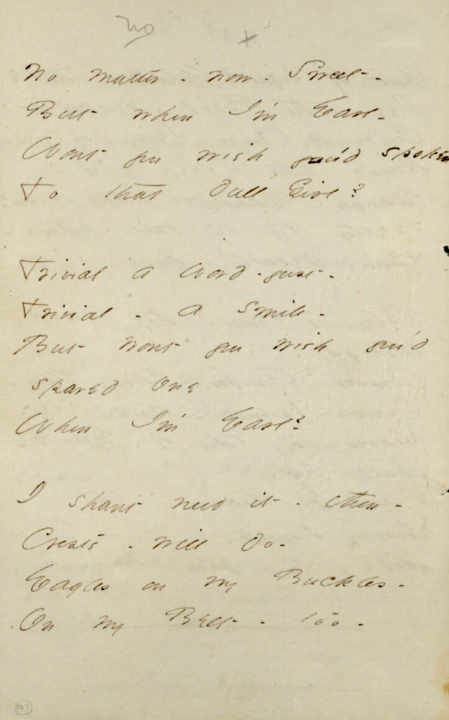 no x
No matter - now - Sweet -
But when I'm Earl -
Wont you wish you'd spoken
To that dull Girl?
Trivial a Word - just -
Trivial - a Smile -
But wont you wish you'd
spared one
When I'm Earl?
I shant need it - then -
Crests - will do -
Eagles on my Buckles -
On my Belt - too -